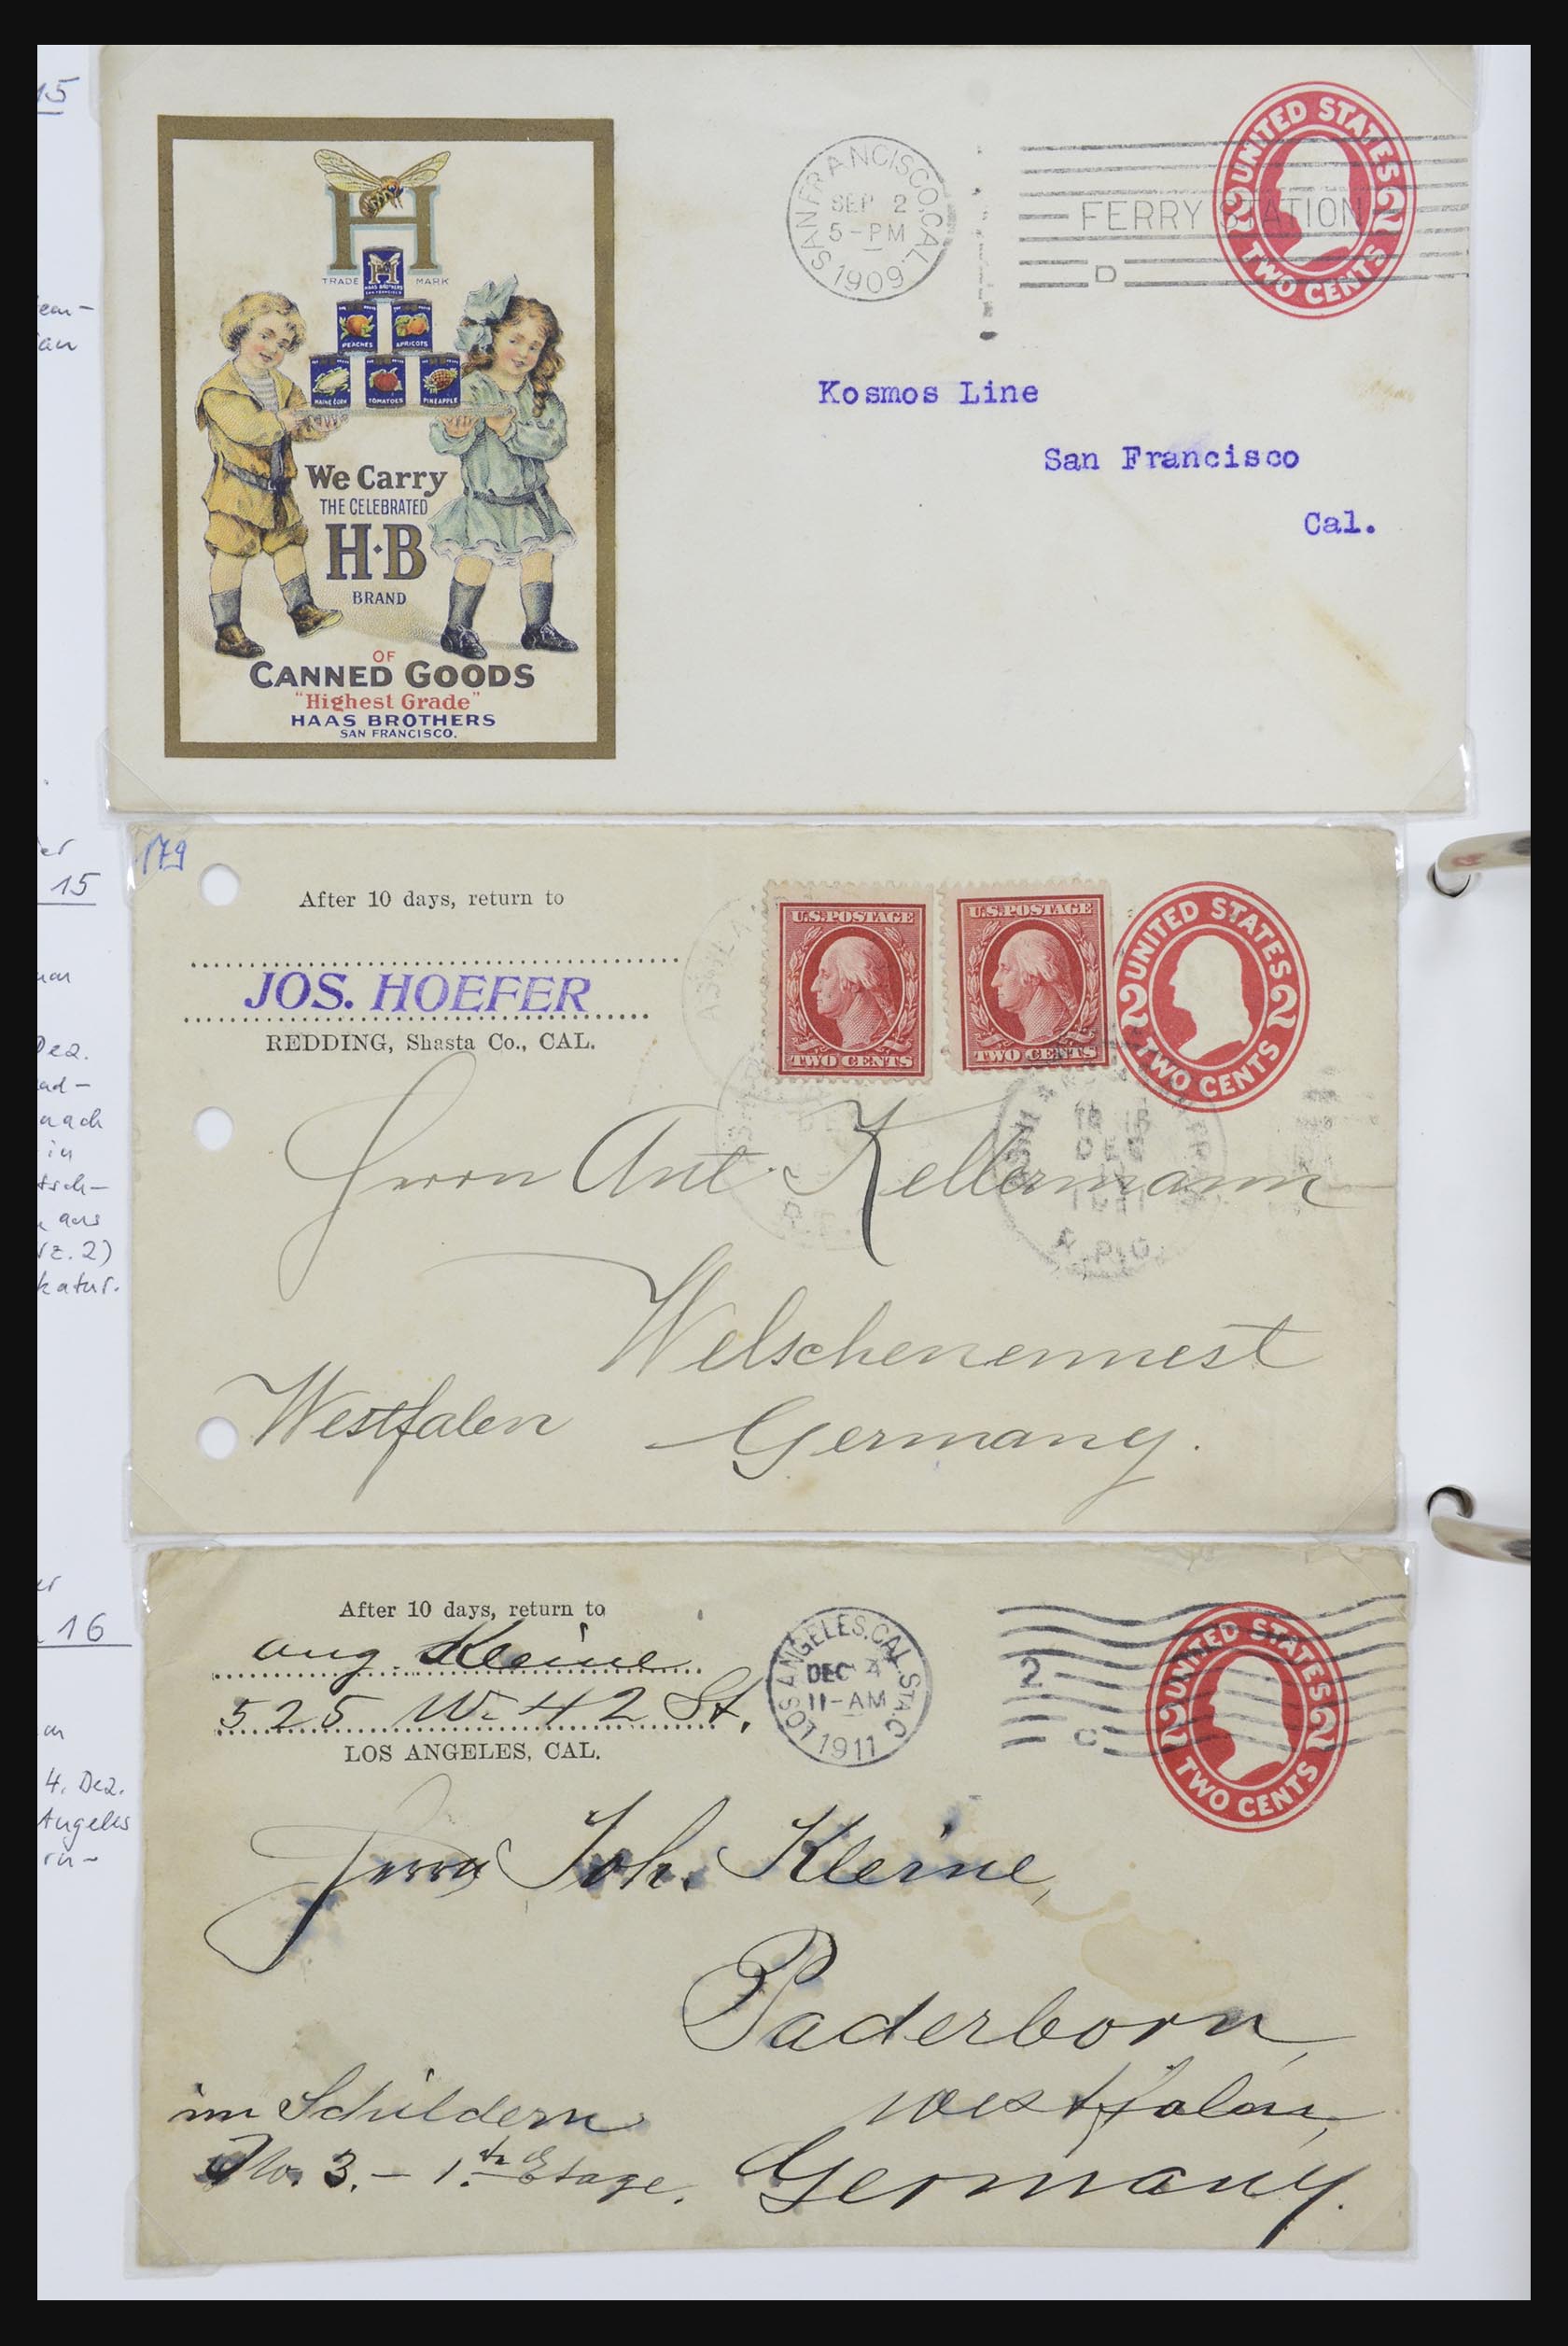 15
H
TRADE MARK
H
HAAS BROTHERS
PEACHES
APRICOTS
MAINE CORN
TOMATOES
PINEAPPLE
We Carry
THE CELEBRATED
H·B
BRAND
OF
CANNED GOODS
"Highest Grade"
HAAS BROTHERS
SAN FRANCISCO.
SAN FRANCISCO, CAL.
SEP 2
5-PM
1909
FERRY STATION
D
UNITED STATES
2 2
TWO CENTS
Kosmos Line
San Francisco
Cal.
15
Dez.
ad-
nach
in
tsch-
aus
z. 2)
katur.
179
After 10 days, return to
JOS. HOEFER
REDDING, Shasta Co., CAL.
U.S. POSTAGE
TWO CENTS
U.S. POSTAGE
TWO CENTS
UNITED STATES
2 2
TWO CENTS
DEC
R.P.O.
Herrn Ant. Kellermann
Welschenennest
Westfalen Germany.
16
4. Dez.
Angeles
After 10 days, return to
Aug. Kleine
525 W. 42 St.
LOS ANGELES, CAL.
LOS ANGELES, CAL. STA. C
DEC 4
11-AM
1911
2
C
UNITED STATES
2 2
TWO CENTS
Herrn Joh. Kleine,
Paderborn,
Westfalen,
im Schildern
No. 3. - 1.te Etage.
Germany.